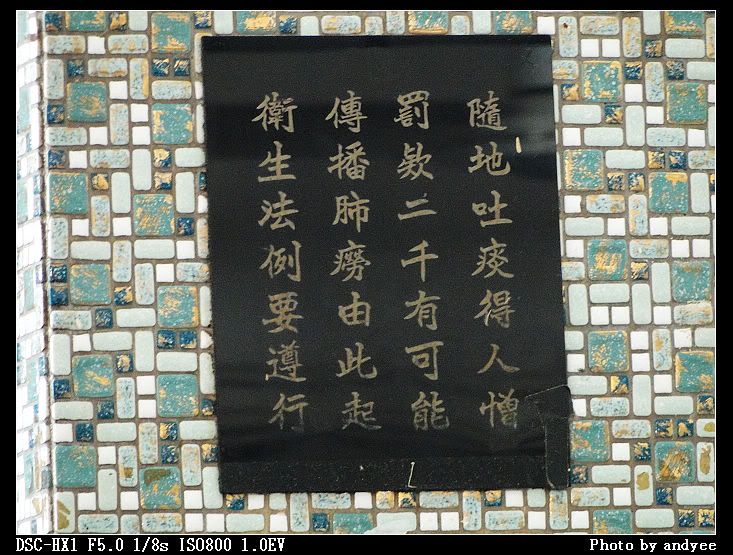 隨地吐痰得人憎
罰欵二千有可能
傳播肺癆由此起
衛生法例要遵行
DSC-HX1 F5.0 1/8s ISO800 1.0EV
Photo by andyee